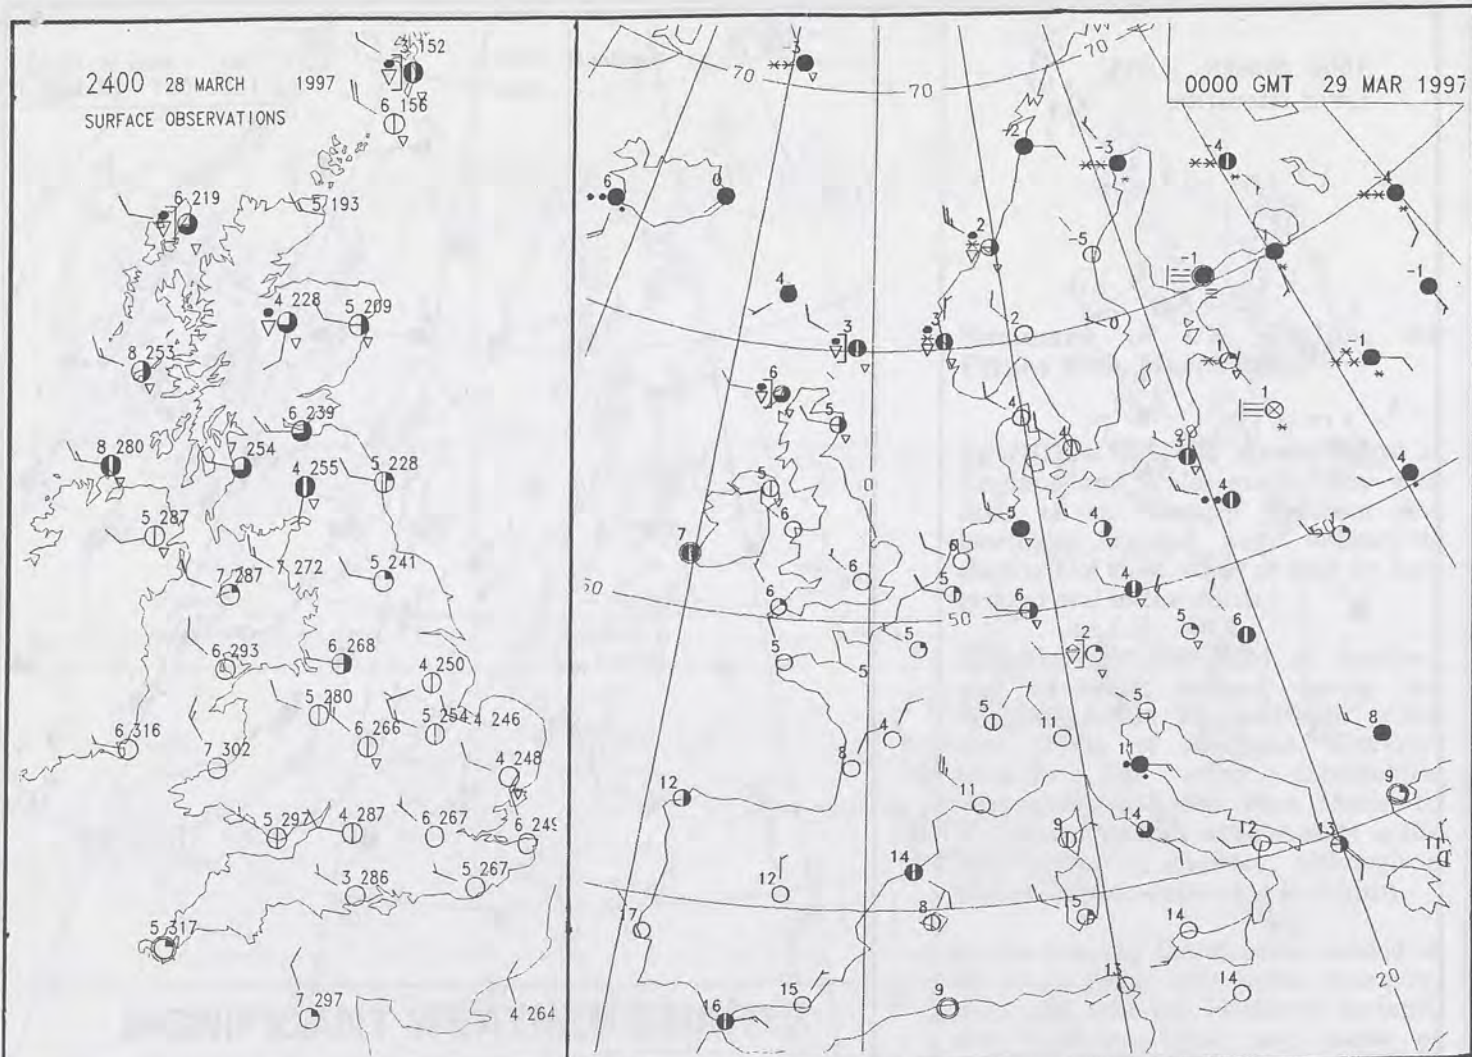 2400 28 MARCH 1997
SURFACE OBSERVATIONS
3 152
6 156
6 219
5 193
4 228
5 209
8 253
6 239
8 280
254
4 255
5 228
5 287
7 272
7 287
5 241
6 293
6 268
4 250
5 280
5 254
4 246
6 316
6 266
7 302
4 248
5 297
4 287
6 267
6 249
3 286
5 267
5 317
7 297
4 264
0000 GMT 29 MAR 1997
-3
70
70
70
-2
-3
-4
-4
6
0
2
-5
-1
-1
4
3
3
2
0
1
-1
6
5
4
4
1
3
5
0
4
4
6
5
4
1
50
7
6
6
5
4
50
6
5
6
50
6
5
5
5
2
4
5
11
5
8
8
12
11
11
9
9
14
12
13
11
14
12
8
15
14
17
15
9
13
14
16
20